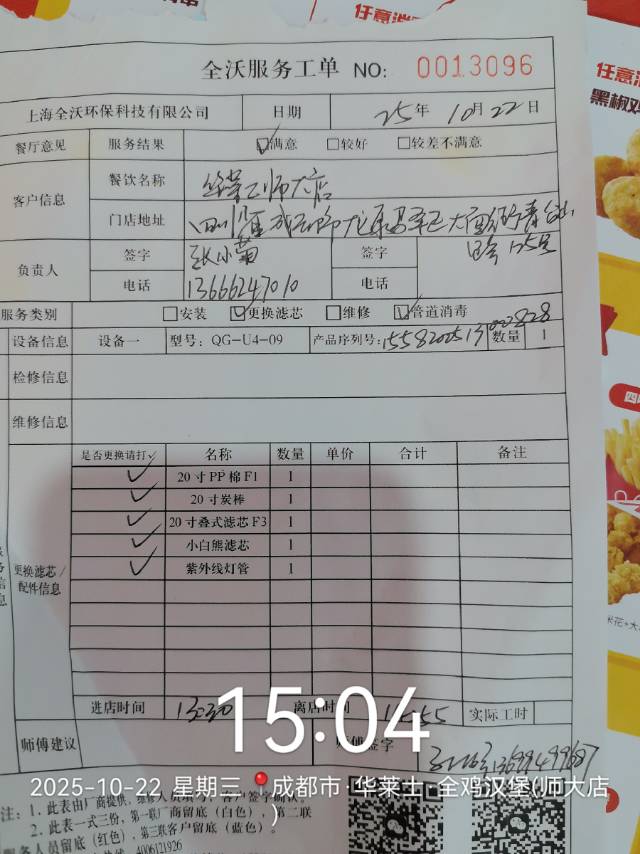 任意
任意
黑椒鸡
全沃服务工单 NO: 0013096
上海全沃环保科技有限公司 日期 25年10月22日
餐厅意见 服务结果 ☑满意 □较好 □较差不满意
客户信息 餐饮名称 华莱士师大店
门店地址 四川省成都
负责人 签字 张小菊 签字
电话 13666247010 电话
服务类别 □安装 ☑更换滤芯 □维修 ☑管道消毒
设备信息 设备一 型号: QG-U4-09 产品序列号: 数量 1
检修信息
维修信息
更换滤芯/配件信息
是否更换请打√ 名称 数量 单价 合计 备注
✓ 20寸PP棉F1 1
✓ 20寸炭棒 1
✓ 20寸叠式滤芯F3 1
✓ 小白熊滤芯 1
✓ 紫外线灯管 1
进店时间 13:30 离店时间 实际工时
师傅建议 师傅签字
15:04
2025-10-22 星期三 成都市·华莱士·全鸡汉堡(师大店)
注: 1. 此表由厂商提供, 维修人员填写, 客户签字确认。
2. 此表一式三份, 第一联厂商留底(白色), 第二联
服务人员留底(红色), 第三联客户留底(蓝色)。
4006121926